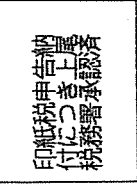 印紙税申告納
付につき上尾
税務署承認済